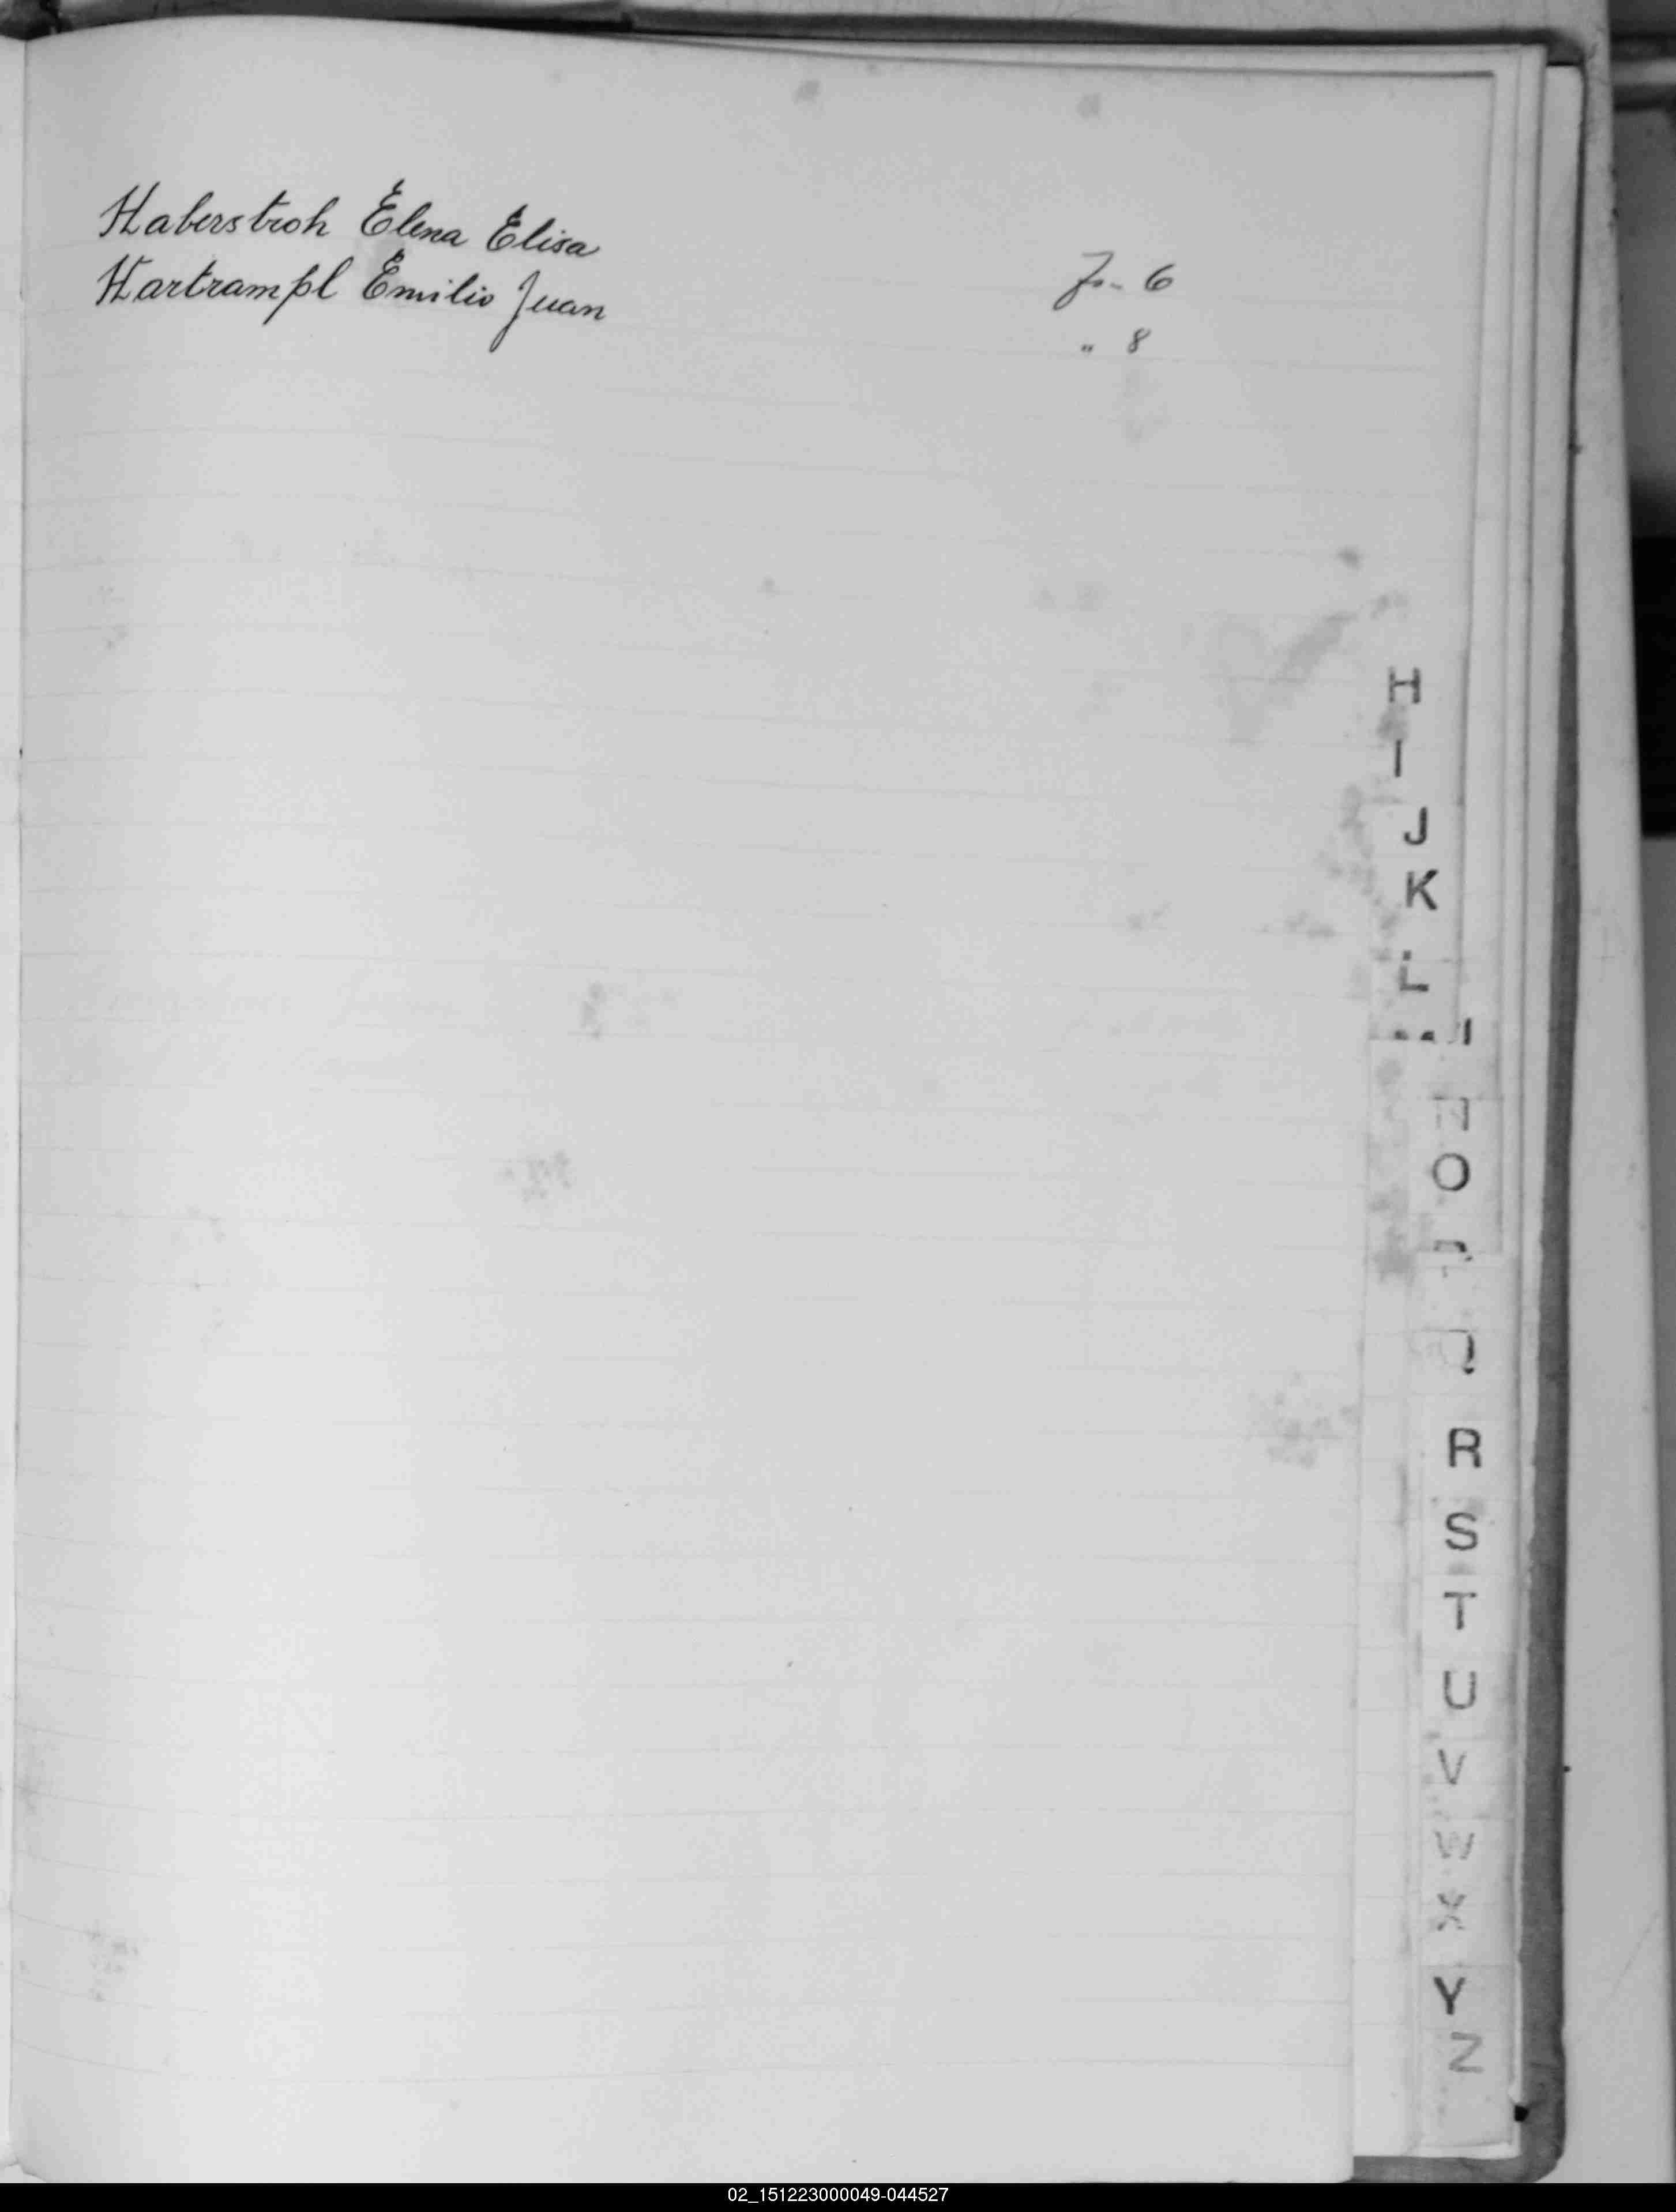 Haberstroh Elena Elisa Fo- 6
Hartrampl Emilio Juan " 8
H
I
J
K
L
O
R
S
T
U
V
W
X
Y
Z
02_151223000049-044527